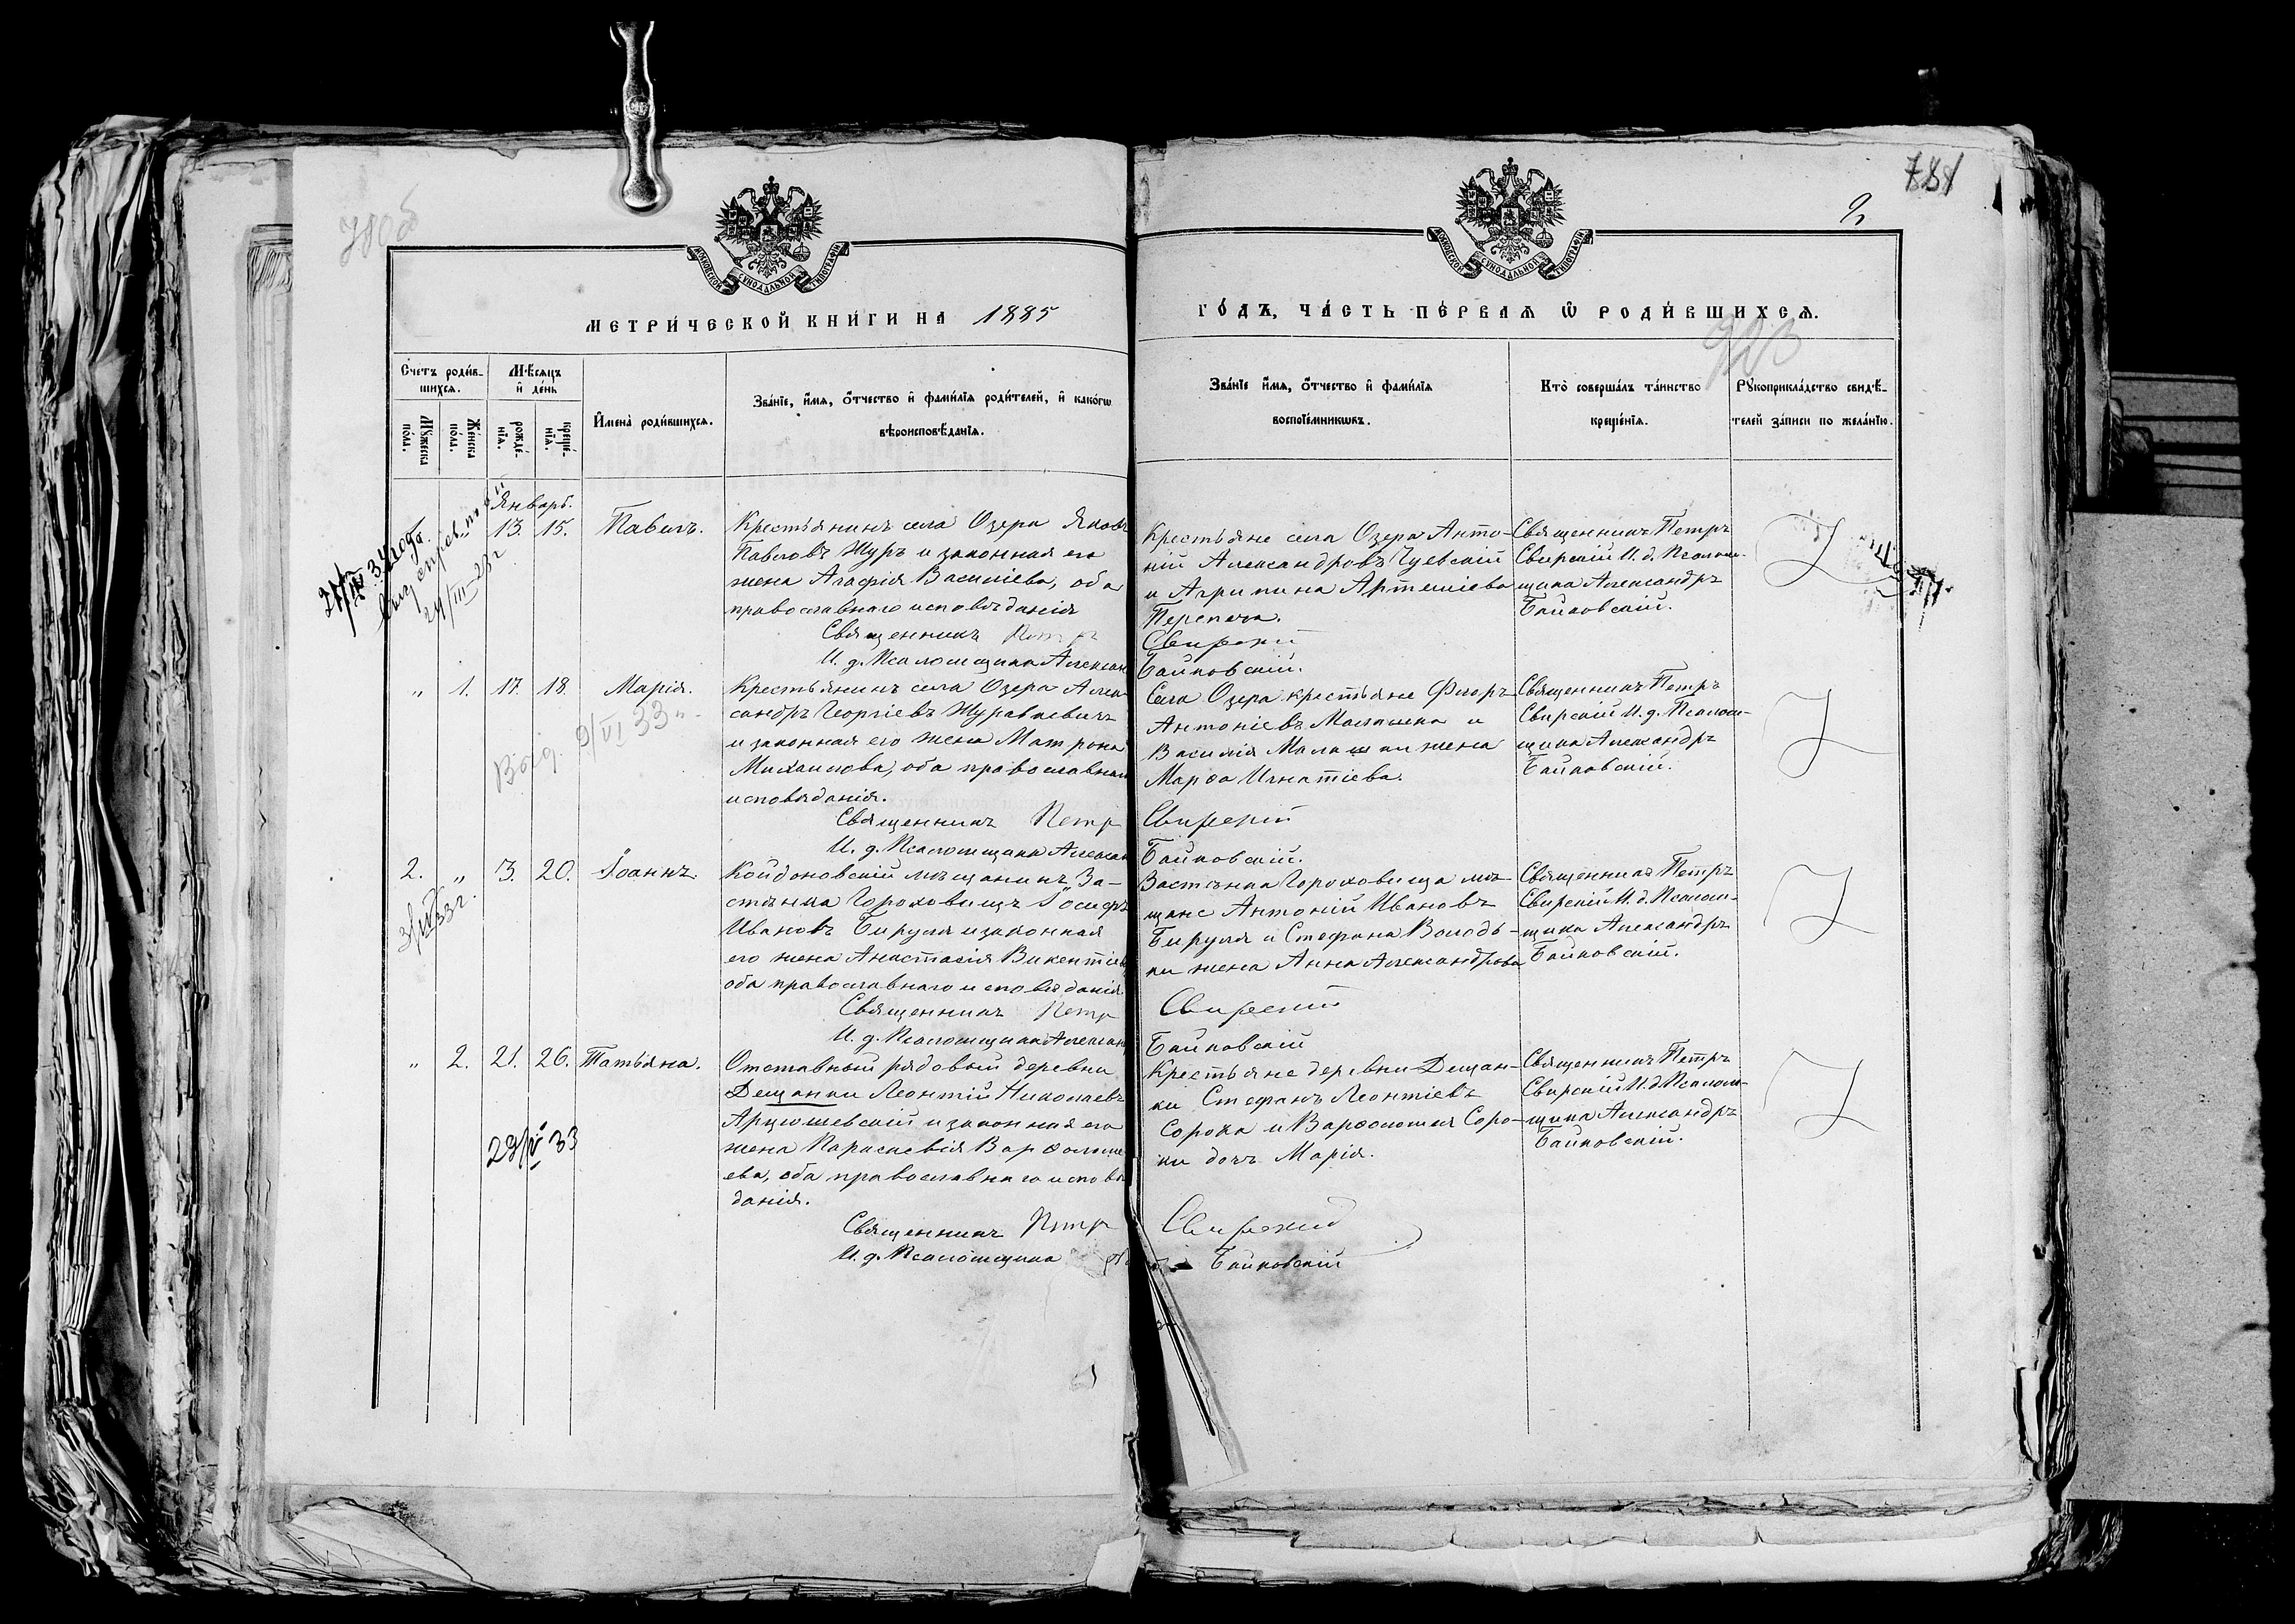 780б
781
2
МОСКОВСКОЙ СѴНОДАЛЬНОЙ ТИПОГРАФІИ
МОСКОВСКОЙ СѴНОДАЛЬНОЙ ТИПОГРАФІИ
МЕТРИ́ЧЕСКОЙ КНИ́ГИ НА 1885
ГО́ДЪ, ЧА́СТЬ ПЕ́РВАѦ Ѡ҆ РОДИ́ВШИХСѦ.
Сче́тъ роди́в-
шихсѧ.
Мꙋ́жеска
по́ла.
Же́нска
по́ла.
М́ѣсѧцъ
и҆ де́нь
рожде́-
нїѧ.
креще́-
нїѧ.
И҆мена̀ роди́вшихсѧ.
Зва́нїе, и҆́мѧ, ѻ҆́тчество и҆ фами́лїѧ роди́телей, и҆ како́гѡ
вѣроисповѣ́данїѧ.
Зва́нїе и҆́мѧ, ѻ҆́тчество и҆ фами́лїѧ
воспрїе́мникѡвъ.
Кто̀ соверша́лъ та́инство
креще́нїѧ.
Рꙋкоприкла́дство свидѣ́-
телей за́писи по жела́нїю.
Январь.
13. 15. Павелъ.
Крестьянинъ села Озера Яковъ
Павловъ Журъ и законная его
жена Агафія Василіева, оба
православнаго исповѣданія
Священникъ Петръ
И. д. Псаломщика Алексан
Крестьяне села Озера Анто-
ній Александровъ Чуевскій
и Агрипина Артеміева
Перепеча.
Свирскій
Байковскій.
Священникъ Петръ
Свирскій И. д. Псалом-
щика Александръ
Байковскій.
„ 1. 17. 18. Марія.
Выд. 9/VI 33 г.
Крестьянинъ села Озера Алек-
сандръ Георгіевъ Журавлевичъ
и законная его жена Матрона
Михаилова, оба православнаго
исповѣданія.
Священникъ Петр
И. д. Псаломщика Алексан
Села Озера крестьяне Флоръ
Антоніевъ Малашка и
Василія Малашки жена
Марѳа Игнатіева.
Свирскій
Байковскій.
Священникъ Петръ
Свирскій И. д. Псалом-
щика Александръ
Байковскій.
2. „ 3. 20. Іоаннъ.
Койдоновскій мѣщанинъ За-
стѣнка Гороховищъ Іосифъ
Ивановъ Бируля и законная
его жена Анастасія Викентіев
оба православнаго исповѣданія
Священникъ Петр
И. д. Псаломщика Алексан
Застѣнка Гороховища мѣ-
щане Антоній Ивановъ
Бируля и Стефана Володь-
ки жена Анна Александрова
Свирскій
Байковскій
Священникъ Петръ
Свирскій И. д. Псалом-
щика Александръ
Байковскій.
„ 2. 21. 26. Татьяна.
Отставный рядовый деревни
Дещанки Леонтій Николаевъ
Арцюшевскій и законная его
жена Параскевія Варѳоломе
ева, оба православнаго исповѣ
данія.
Священникъ Петр
И. д. Псаломщика
Крестьяне деревни Дещан-
ки Стефанъ Леонтіевъ
Сорока и Варѳоломея Соро-
ки дочь Марія.
Свирскій
Байковскій
Священникъ Петръ
Свирскій И. д. Псалом-
щика Александръ
Байковскій.